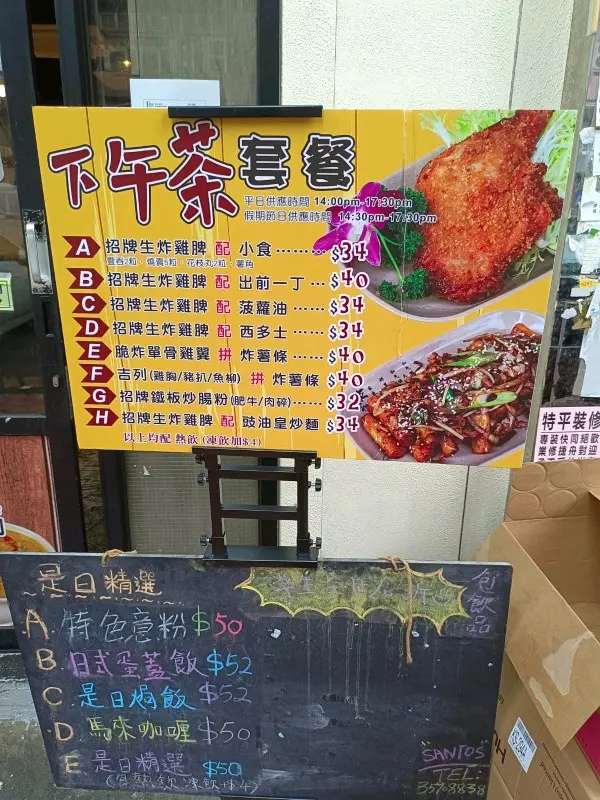 下午茶套餐
平日供應時間 14:00pm-17:30pm
假期節日供應時間 14:30pm-17:30pm
A 招牌生炸雞脾 配 小食………$34
雲吞2粒、燒賣5粒、花枝丸2粒、薯角
B 招牌生炸雞脾 配 出前一丁…$40
C 招牌生炸雞脾 配 菠蘿油……$34
D 招牌生炸雞脾 配 西多士……$34
E 脆炸單骨雞翼 拼 炸薯條……$40
F 吉列(雞胸/豬扒/魚柳) 拼 炸薯條 $40
G 招牌鐵板炒腸粉(肥牛/肉碎)…$32
H 招牌生炸雞脾 配 豉油皇炒麵 $34
以上均配 熱飲(凍飲加$4)
特平裝修
是日精選
包飲品
A. 特色意粉 $50
B 日式蛋蓋飯 $52
C 是日焗飯 $52
D 馬來咖喱 $50
E 是日精選 $50
(包熱飲 凍飲+$4)
SANTOS
TEL: